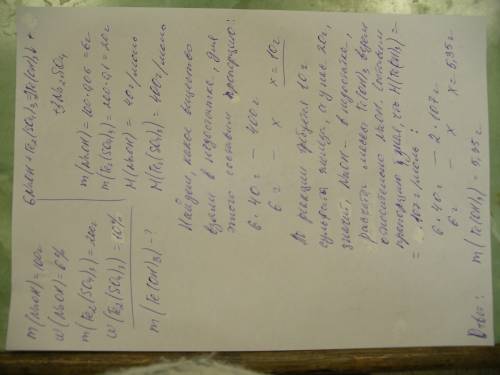 m(NaOH)=100г
w(NaOH)=6%
m(Fe2(SO4)3)=200г
w(Fe2(SO4)3)=10%
m(Fe(OH)3)-?
6NaOH+Fe2(SO4)3=2Fe(OH)3↓+
+3Na2SO4
m(NaOH)=100·0,06=6г
m(Fe2(SO4)3)=200·0,1=20г
M(NaOH)=40г/моль
M(Fe2(SO4)3)=400г/моль
Найдем, какое вещество
взяли в недостатке, для
этого составим пропорцию:
6·40г – 400г
6г – x x=10г
В реакции требуется 10г
сульфата железа, а у нас 20г,
значит, NaOH – в недостатке,
расчет массы Fe(OH)3 ведем
относительно NaOH. Составим
пропорцию, зная, что M(Fe(OH)3)=
=107г/моль:
6·40г – 2·107г
6г – x x=5,35г
Ответ: m(Fe(OH)3)=5,35г